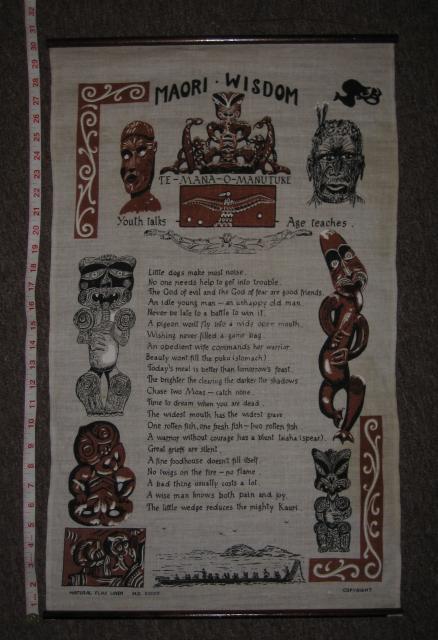 MAORI · WISDOM
TE-MANA-O-MANUTUKE
Youth talks — Age teaches.
Little dogs make most noise.
No one needs help to get into trouble.
The God of evil and the God of fear are good friends.
An idle young man — an unhappy old man.
Never be late to a battle to win it.
A pigeon won't fly into a wide open mouth.
Wishing never filled a game bag.
An obedient wife commands her warrior.
Beauty wont fill the puku (stomach)
Today's meal is better than tomorrow's feast.
The brighter the clearing the darker the shadows.
Chase two Moas — catch none.
Time to dream when you are dead.
The widest mouth has the widest grave
One rotten fish, one fresh fish — two rotten fish
A warrior without courage has a blunt taiaha (spear).
Great griefs are silent.
A fine foodhouse doesn't fill itself.
No twigs on the fire — no flame.
A bad thing usually costs a lot.
A wise man knows both pain and joy.
The little wedge reduces the mighty Kauri.
NATURAL FLAX LINEN
COPYRIGHT
1
2
3
4
5
6
7
8
9
10
11
12
13
14
15
16
17
18
19
20
21
22
23
24
25
26
27
28
29
30
31
32